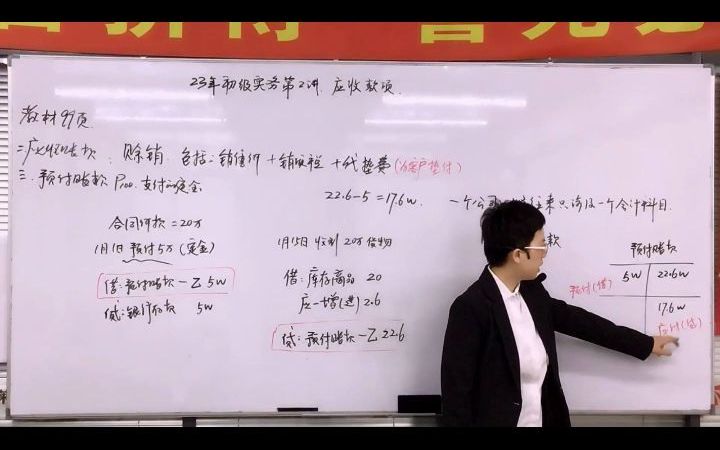 23年初级实务第2讲 应收款项
教材99页
二.应收账款:赊销 包括:销售价+销项税+代垫费(为客户垫付)
三.预付账款 P100 支付订定金
22.6-5=17.6w.
一个公司 往来只设及一个会计科目.
合同价款=20万
1月1日 预付5万(定金)
借:预付账款-乙 5w
贷:银行存款 5w
1月15日 收到 20万货物
借:库存商品 20
应-增(进) 2.6
贷:预付账款-乙 22.6
款
预付账款
预付(借) 5w 22.6w
17.6w
应付(贷)